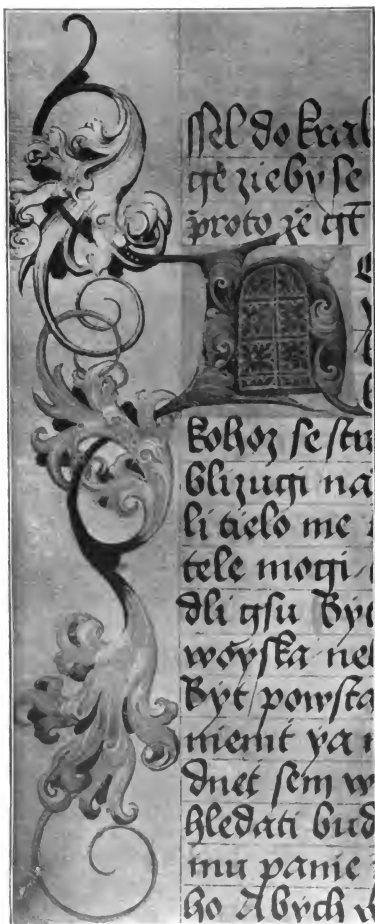 ſſel do kral
gē zieby ſe
proto že gt̄
kohoz ſe ſtra
blizugi na
li tielo me
tele mogi
dli gſu Byt
woyſka ne
Byt powſta
nienit ya
dnet ſem w
hledati bud
mu panie
ho Abych